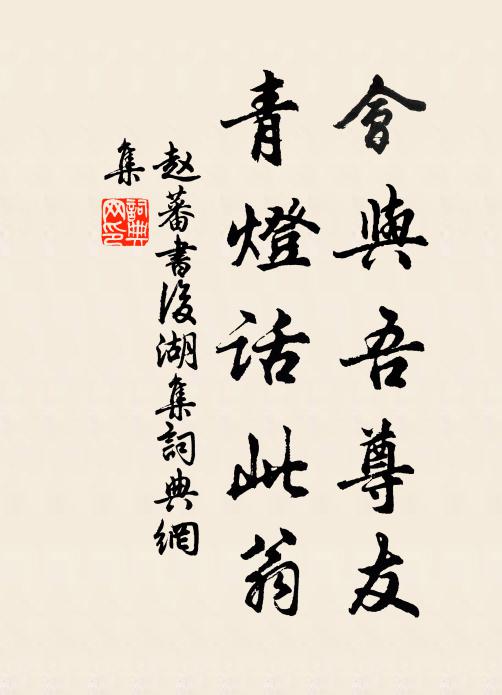 會與吾尊友
青燈話此翁
赵蕃書後湖集詞典網
集
詞典
网印